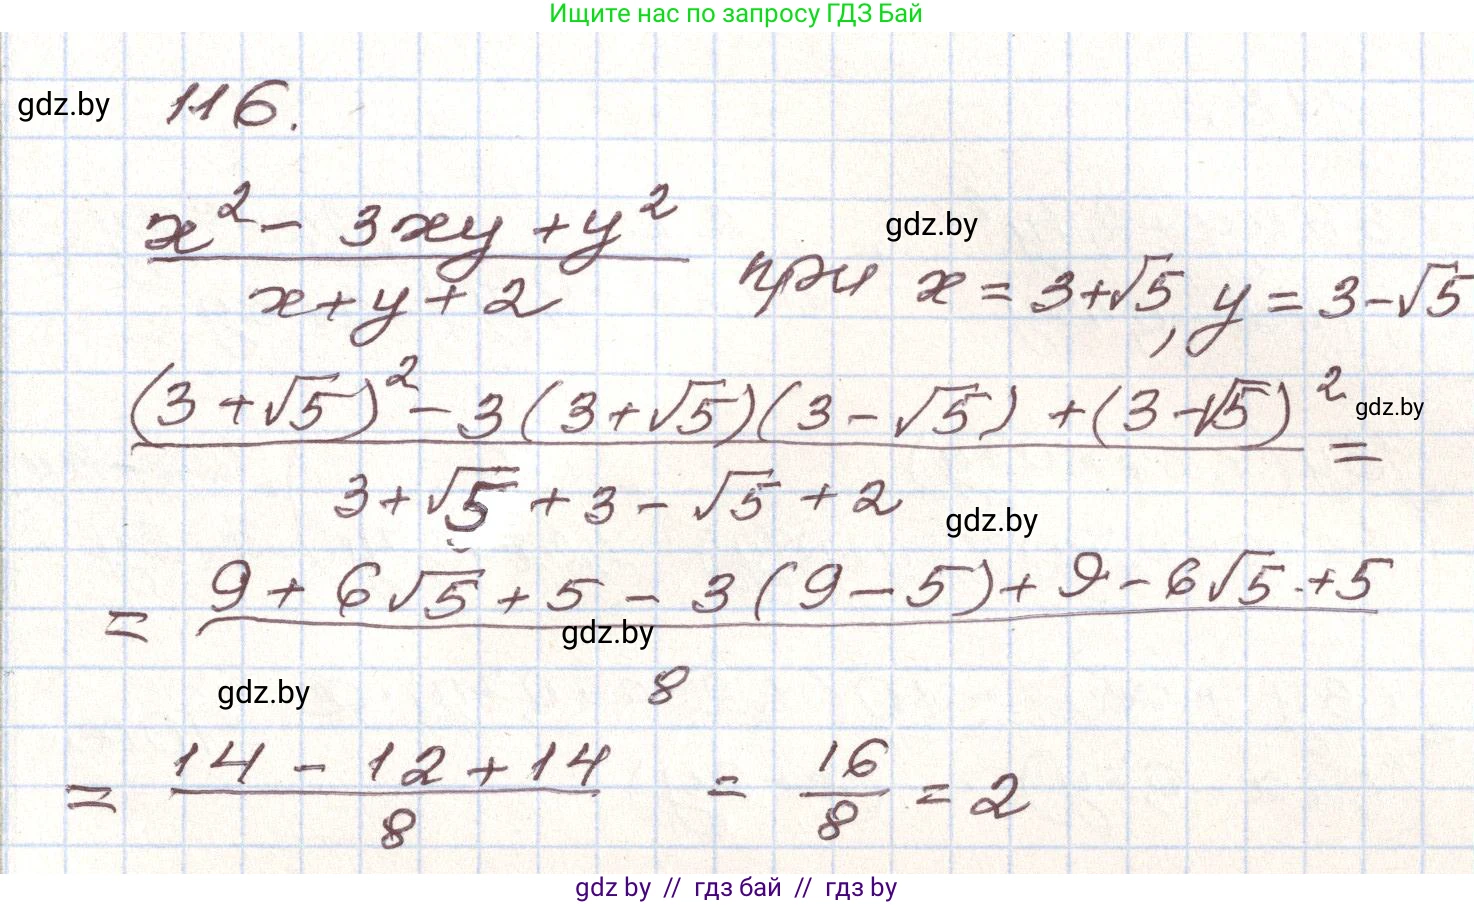 Ищите нас по запросу ГДЗ Бай
gdz.by 116.
(x² - 3xy + y²)/(x + y + 2) при x = 3+√5, y = 3-√5
gdz.by
((3+√5)² - 3(3+√5)(3-√5) + (3-√5)²)/(3+√5+3-√5+2) =
gdz.by
gdz.by
= (9+6√5+5-3(9-5)+9-6√5+5)/8
gdz.by
gdz.by
= (14-12+14)/8 = 16/8 = 2
gdz by // гдз бай // гдз by